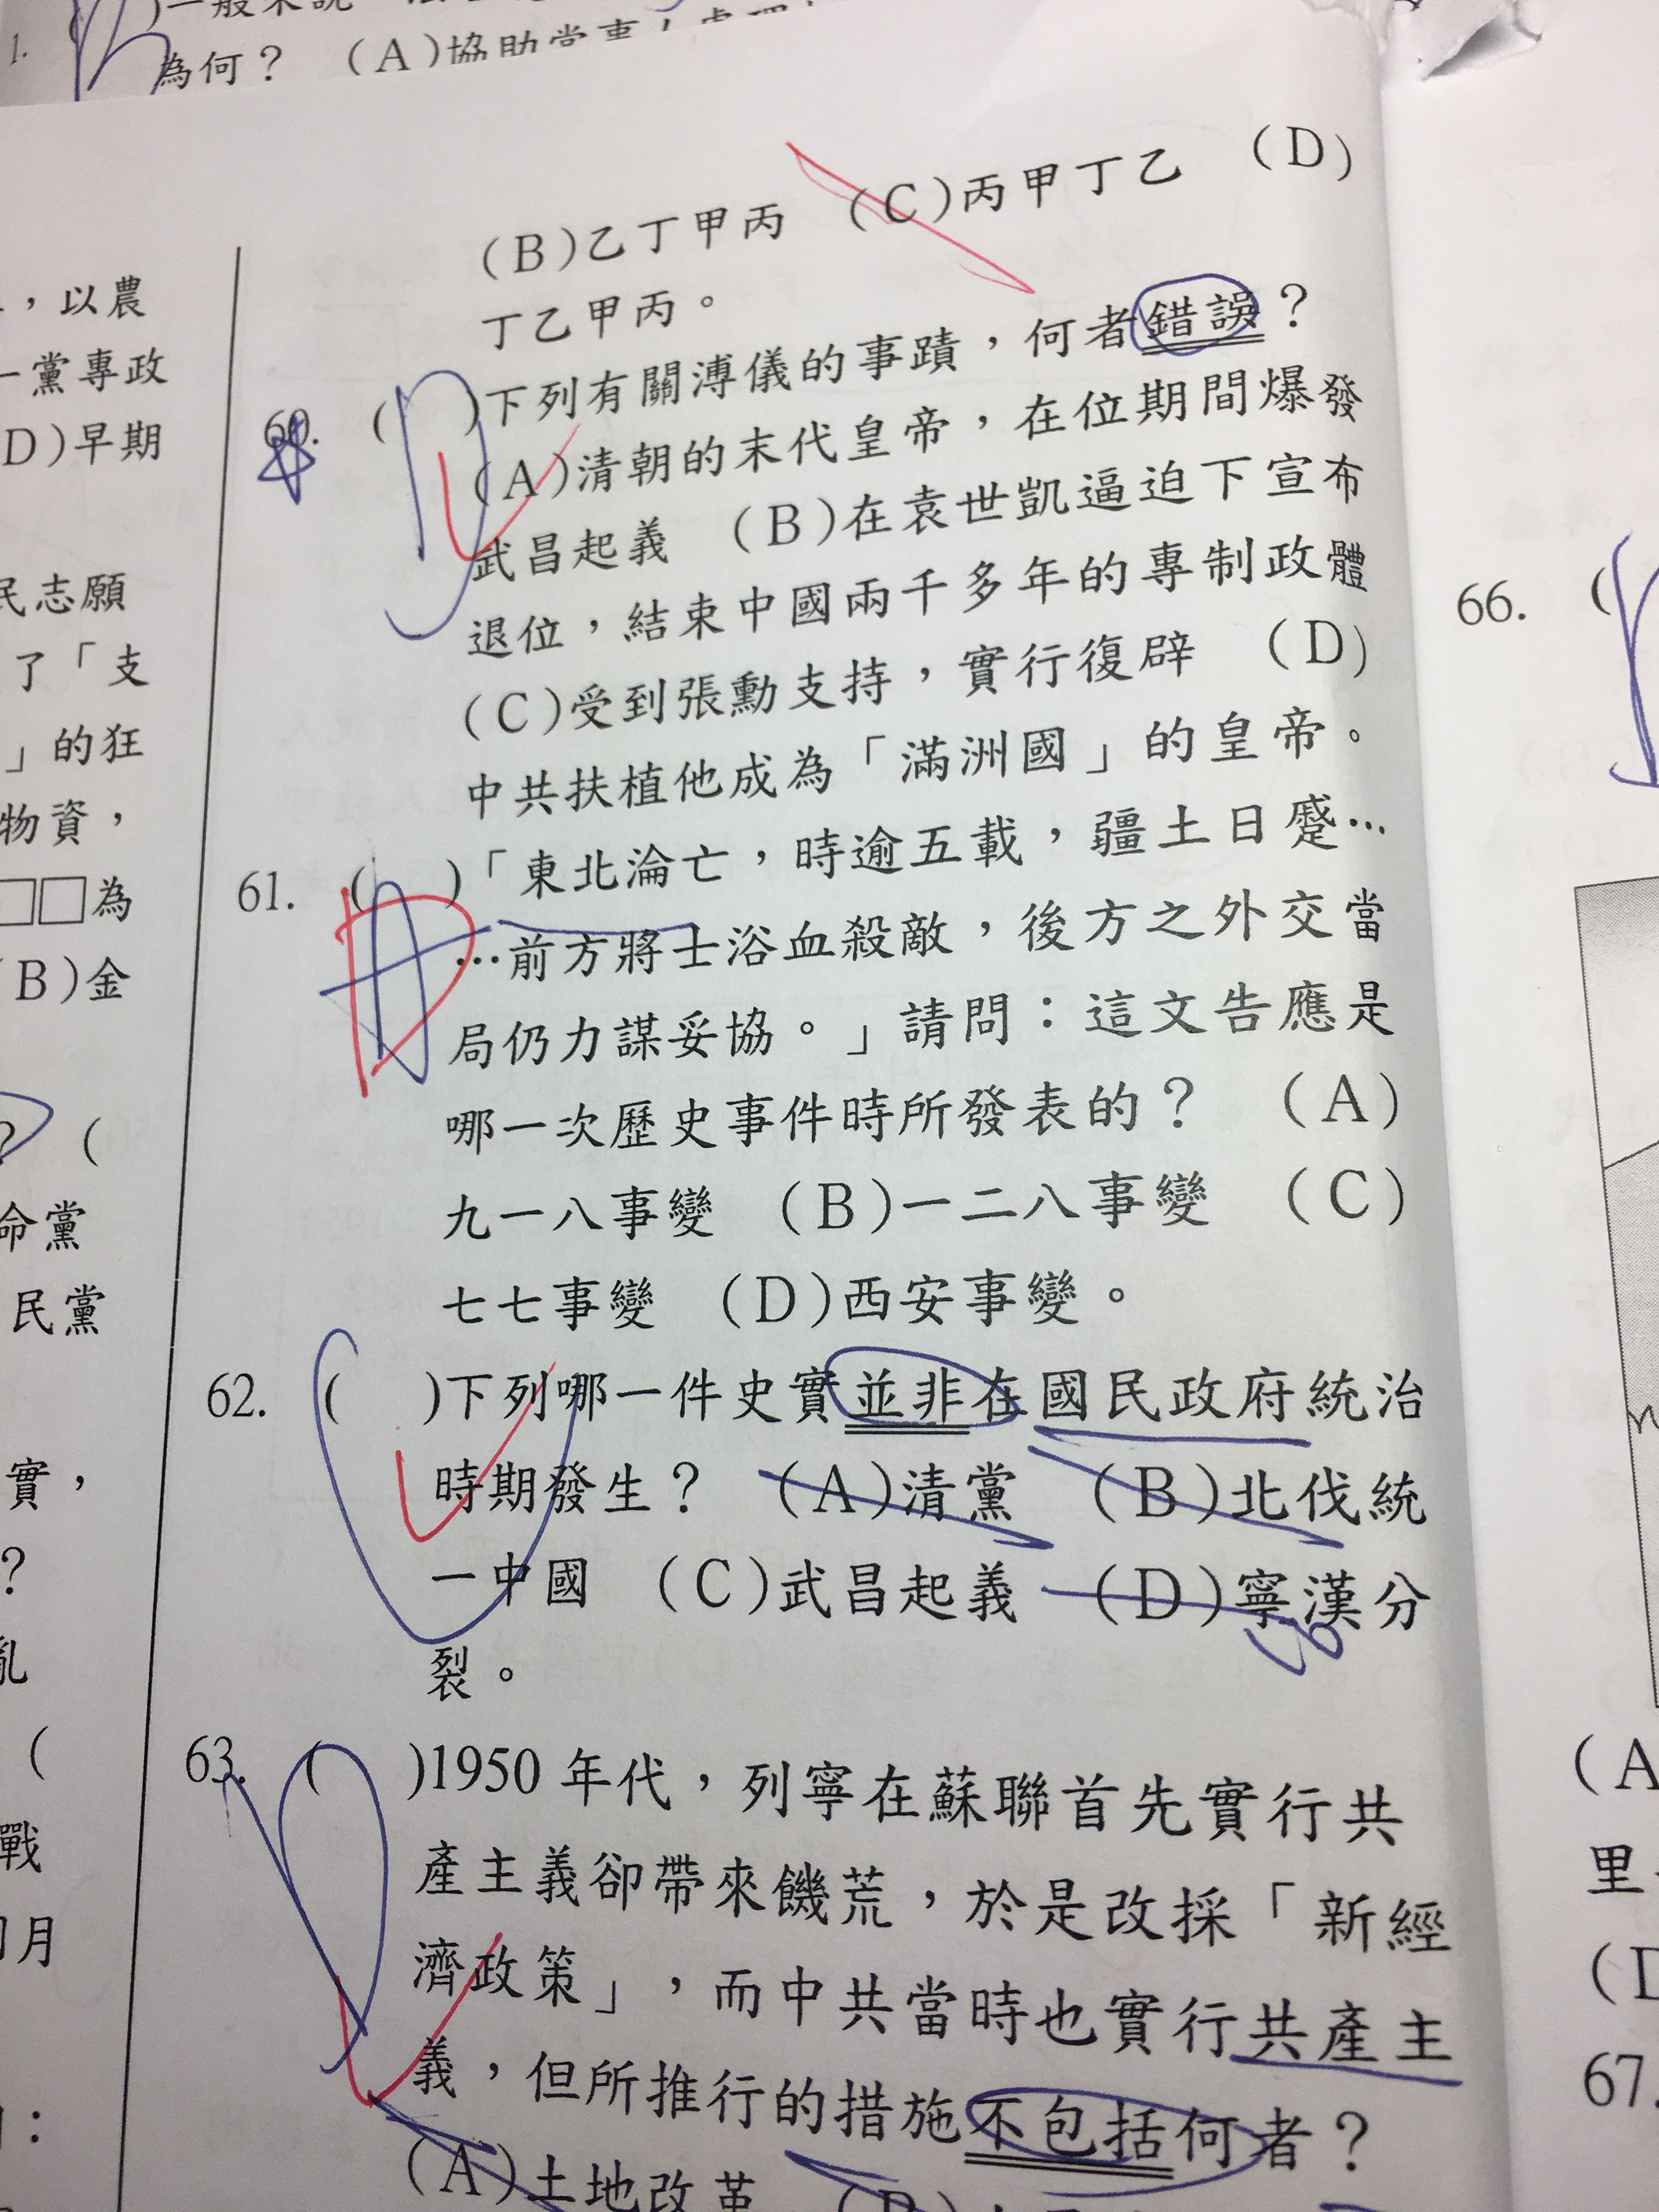 1.
為何？ (A)協助當事人處理
，以農
一黨專政
D)早期
民志願
了「支
」的狂
物資，
□□為
B)金
？ (
命黨
民黨
實，
？
亂
(
戰
月
：
(B)乙丁甲丙 (C)丙甲丁乙 (D)
丁乙甲丙。
60. ( )下列有關溥儀的事蹟，何者錯誤？
(A)清朝的末代皇帝，在位期間爆發
武昌起義 (B)在袁世凱逼迫下宣布
退位，結束中國兩千多年的專制政體
(C)受到張勳支持，實行復辟 (D)
中共扶植他成為「滿洲國」的皇帝。
61. ( )「東北淪亡，時逾五載，疆土日蹙…
…前方將士浴血殺敵，後方之外交當
局仍力謀妥協。」請問：這文告應是
哪一次歷史事件時所發表的？ (A)
九一八事變 (B)一二八事變 (C)
七七事變 (D)西安事變。
62. ( )下列哪一件史實並非在國民政府統治
時期發生？ (A)清黨 (B)北伐統
一中國 (C)武昌起義 (D)寧漢分
裂。
63. ( )1950 年代，列寧在蘇聯首先實行共
產主義卻帶來饑荒，於是改採「新經
濟政策」，而中共當時也實行共產主
義，但所推行的措施不包括何者？
(A)土地改革 (B)
66. (
(A
里
(D
67.